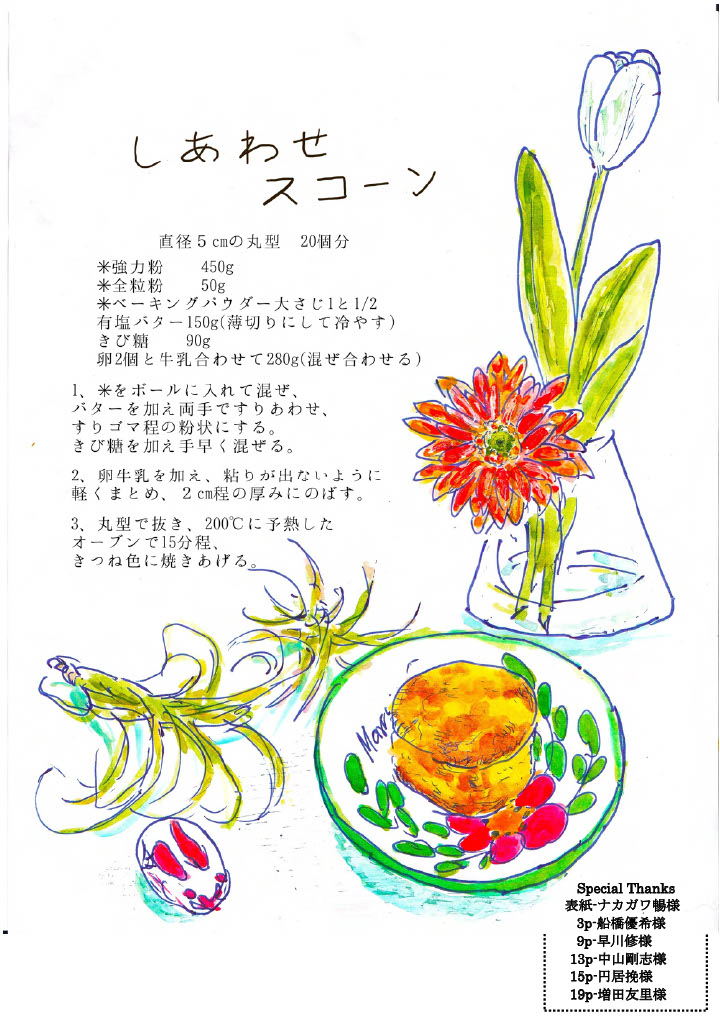 しあわせ
スコーン
直径５㎝の丸型　20個分
＊強力粉　　450g
＊全粒粉　　50g
＊ベーキングパウダー大さじ1と1/2
有塩バター150g(薄切りにして冷やす)
きび糖　　90g
卵2個と牛乳合わせて280g(混ぜ合わせる)
1、＊をボールに入れて混ぜ、
バターを加え両手ですりあわせ、
すりゴマ程の粉状にする。
きび糖を加え手早く混ぜる。
2、卵牛乳を加え、粘りが出ないように
軽くまとめ、２㎝程の厚みにのばす。
3、丸型で抜き、200℃に予熱した
オーブンで15分程、
きつね色に焼きあげる。
Special Thanks
表紙-ナカガワ暢様
3p-船橋優希様
9p-早川修様
13p-中山剛志様
15p-円居挽様
19p-増田友里様